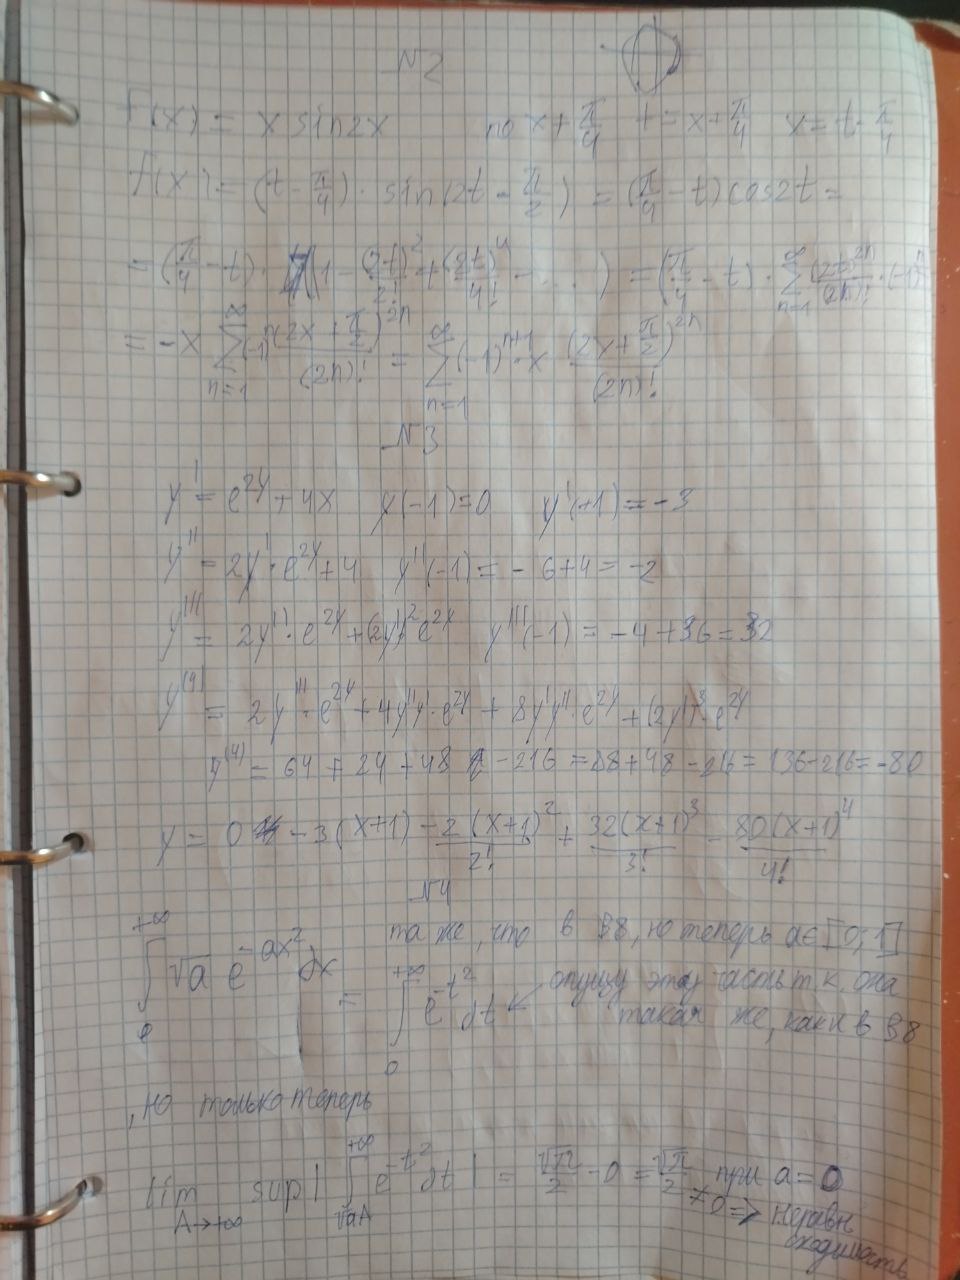 N2
f(x) = x sin2x   по x + π/4   t = x + π/4   x = t - π/4
f(x) = (t - π/4) · sin(2t - π/2) = (π/4 - t) cos2t =
= (π/4 - t) · (1 - (2t)²/2! + (2t)⁴/4! - ...) = (π/4 - t) · ∑_{n=1}^{∞} (2t)^{2n}/(2n)! · (-1)^n
= -x ∑_{n=1}^{∞} (-1)^n (2x + π/2)^{2n}/(2n)! = ∑_{n=1}^{∞} (-1)^{n+1} · x (2x + π/2)^{2n}/(2n)!
N3
y' = e^{2y} + 4x   y(-1) = 0   y'(+1) = -3
y'' = 2y' · e^{2y} + 4   y''(-1) = -6 + 4 = -2
y''' = 2y'' · e^{2y} + (2y')² e^{2y}   y'''(-1) = -4 + 36 = 32
y^{(4)} = 2y''' · e^{2y} + 4y''y' · e^{2y} + 8y'y'' · e^{2y} + (2y')³ · e^{2y}
y^{(4)} = 64 + 24 + 48 - 216 = 88 + 48 - 216 = 136 - 216 = -80
y = 0 - 3(x+1) - 2(x+1)²/2! + 32(x+1)³/3! - 80(x+1)⁴/4!
N4
∫_0^{+∞} √a e^{-ax²} dx = ∫_0^{+∞} e^{-t²} dt
та же, что в В8, но теперь a ∈ [0; 1]
опущу эту часть т.к. она
такая же, как и в В8
, но только теперь
lim_{A→+∞} sup | ∫_{√aA}^{+∞} e^{-t²} dt | = √π/2 - 0 = √π/2 при a = 0
≠ 0 => неравн
сходимость